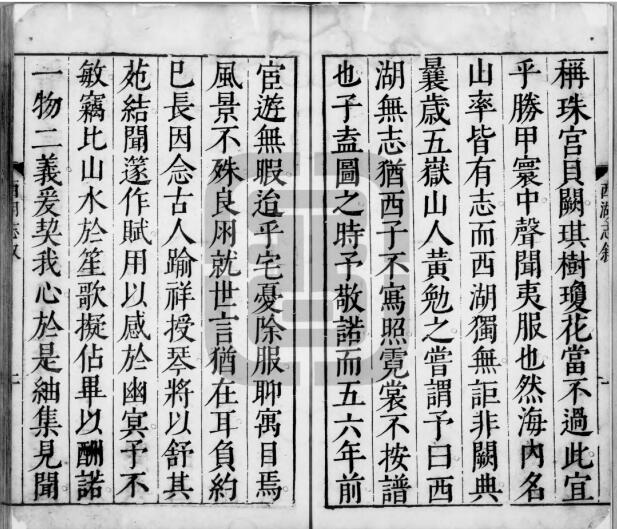 稱珠宫貝闕琪樹瓊花當不過此宜
乎勝甲寰中聲聞夷服也然海内名
山率皆有志而西湖獨無詎非闕典
曩歳五嶽山人黄勉之嘗謂予曰西
湖無志猶西子不寫照霓裳不按譜
也子盍圖之時予敬諾而五六年前
宦遊無暇治乎宅憂除服聊寓目焉
風景不殊良朋就世言猶在耳負約
已長因念古人踰祥授琴將以舒其
苑結聞篴作賦用以感於幽冥予不
敏竊比山水於笙歌擬佔畢以酬諾
一物二義爰契我心於是紬集見聞